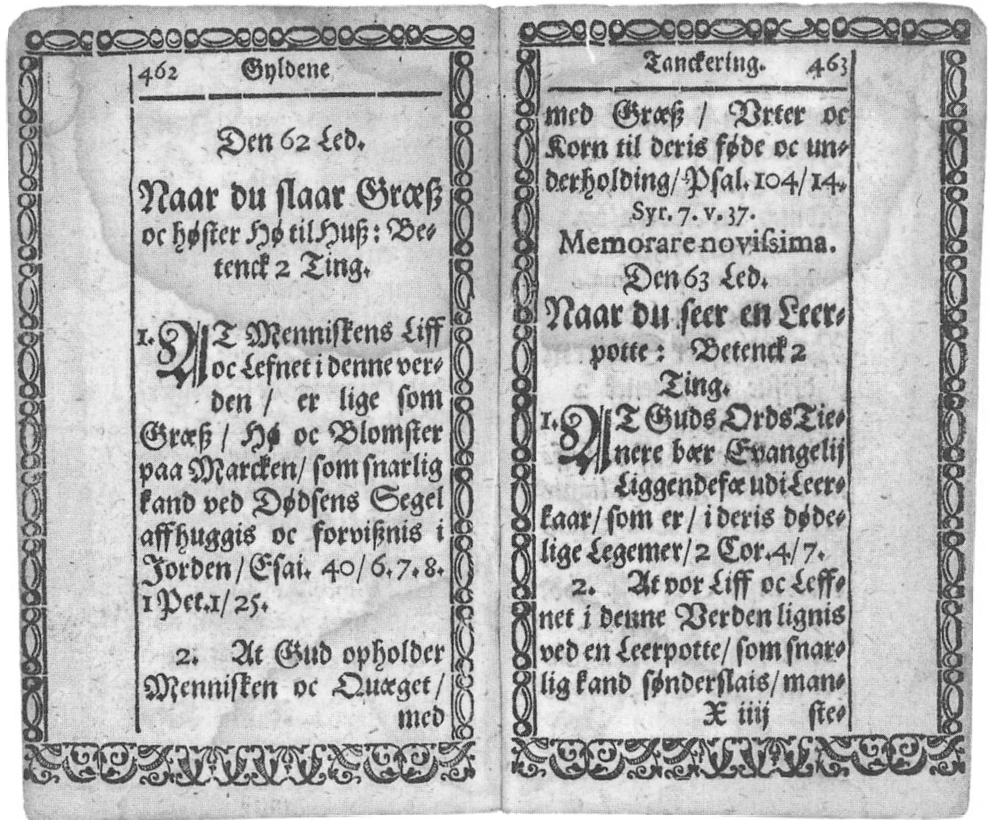 462 Gyldene
Den 62 Led.
Naar du slaar Græß
oc høster Hø til Huß: Be-
tenck 2 Ting.
1. AT Menniskens Liff
oc Lefnet i denne ver-
den / er lige som
Græß / Hø oc Blomster
paa Marcken / som snarlig
kand ved Dødsens Segel
affhuggis oc forvißnis i
Jorden / Esai. 40/6.7.8.
1 Pet. 1/25.
2. At Gud opholder
Mennisken oc Quæget /
med
Tanckering. 463
med Græß / Vrter oc
Korn til deris føde oc un-
derholding / Psal. 104/14.
Syr. 7. v. 37.
Memorare novissima.
Den 63 Led.
Naar du seer en Leer-
potte: Betenck 2
Ting.
1. AT Guds Ords Tie-
nere bær Evangelij
Liggendefæ udi Leer-
kaar / som er / i deris døde-
lige Legemer / 2 Cor. 4/7.
2. At vor Liff oc Leff-
net i denne Verden lignis
ved en Leerpotte / som snar-
lig kand sønderslais / man-
X iiij ste-